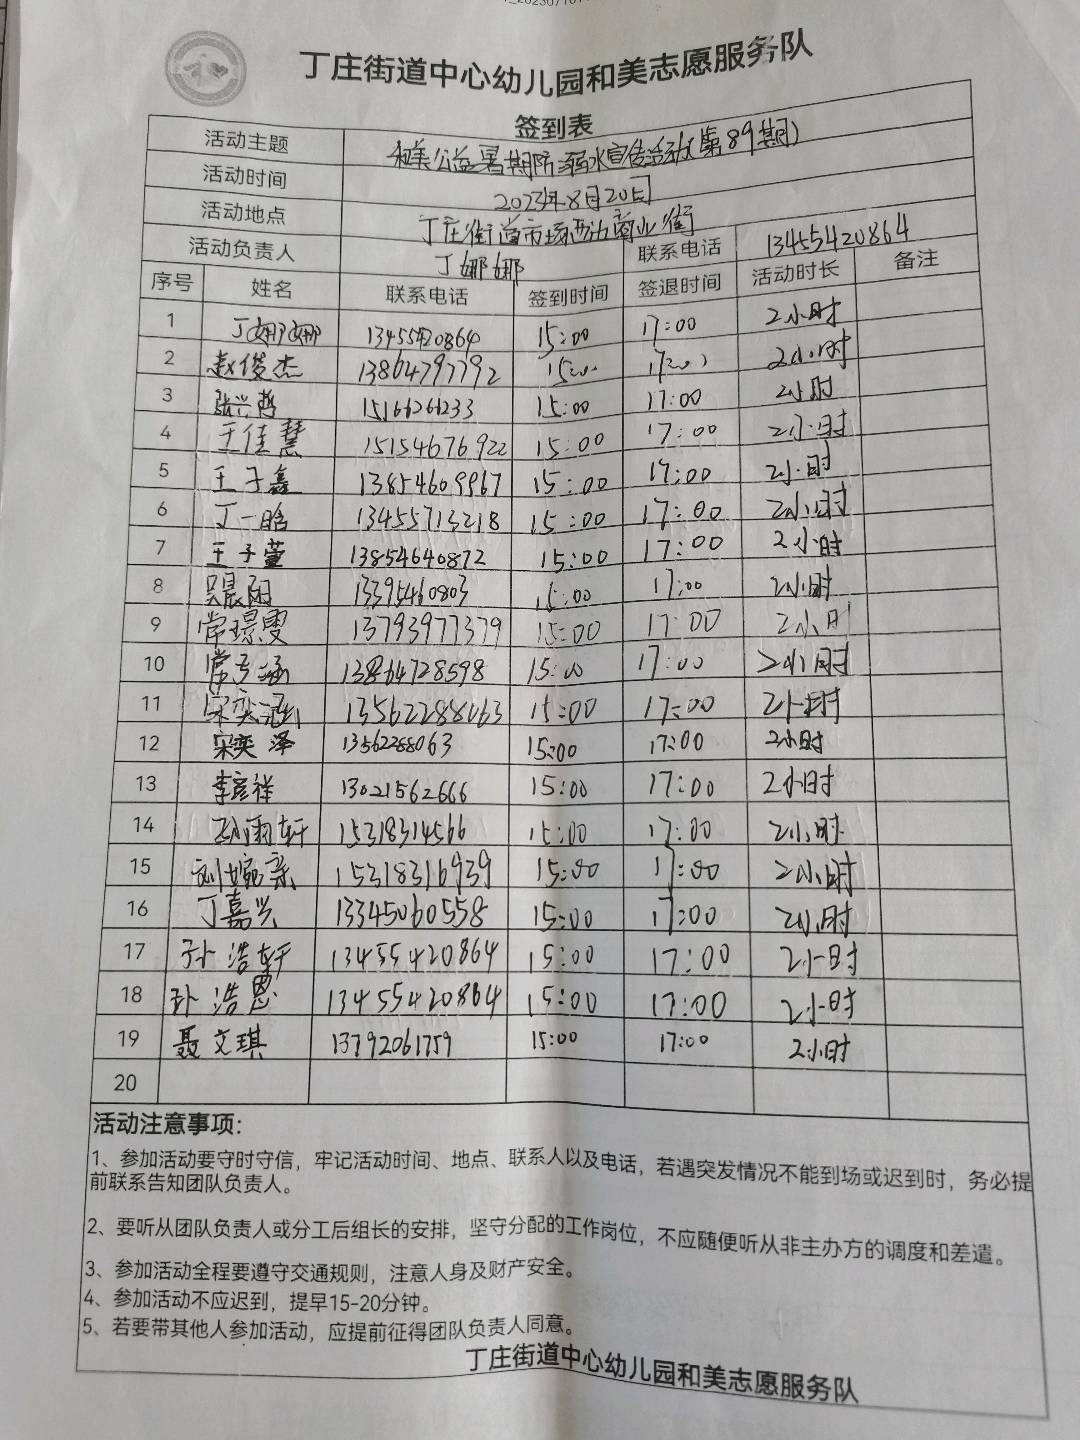 丁庄街道中心幼儿园和美志愿服务队
签到表
活动主题 和美公益暑期防溺水宣传活动(第89期)
活动时间 2023年8月20日
活动地点 丁庄街道市场西边商业街
活动负责人 丁娜娜 联系电话 13455420864
序号 姓名 联系电话 签到时间 签退时间 活动时长 备注
1 丁娜娜 13455420864 15:00 17:00 2小时
2 赵俊杰 13864797792 15:00 17:00 2小时
3 张兴哲 15166266233 15:00 17:00 2小时
4 王佳慧 15154676922 15:00 17:00 2小时
5 王子鑫 13854609967 15:00 17:00 2小时
6 丁一晗 13455713218 15:00 17:00 2小时
7 王子萱 13854640872 15:00 17:00 2小时
8 吴晨阳 13395460803 15:00 17:00 2小时
9 常璟雯 13793977379 15:00 17:00 2小时
10 常 涵 13864728598 15:00 17:00 2小时
11 宋奕 13562288063 15:00 17:00 2小时
12 宋奕泽 1356228063 15:00 17:00 2小时
13 李彦祥 13021562666 15:00 17:00 2小时
14 孙雨轩 15318314566 15:00 17:00 2小时
15 刘婉亲 15318316939 15:00 17:00 2小时
16 丁嘉兴 13345060558 15:00 17:00 2小时
17 孙浩轩 13455420864 15:00 17:00 2小时
18 孙浩恩 13455420864 15:00 17:00 2小时
19 聂文琪 13792061759 15:00 17:00 2小时
20
活动注意事项:
1、参加活动要守时守信，牢记活动时间、地点、联系人以及电话，若遇突发情况不能到场或迟到时，务必提
前联系告知团队负责人。
2、要听从团队负责人或分工后组长的安排，坚守分配的工作岗位，不应随便听从非主办方的调度和差遣。
3、参加活动全程要遵守交通规则，注意人身及财产安全。
4、参加活动不应迟到，提早15-20分钟。
5、若要带其他人参加活动，应提前征得团队负责人同意。
丁庄街道中心幼儿园和美志愿服务队